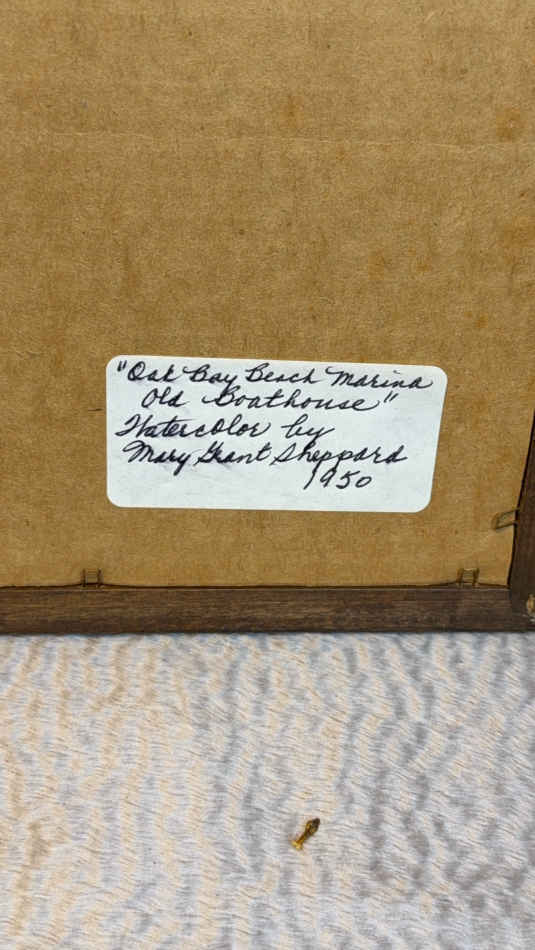 "Oak Bay Beach Marina
Old Boathouse"
Watercolor by
Mary Grant Sheppard
1950